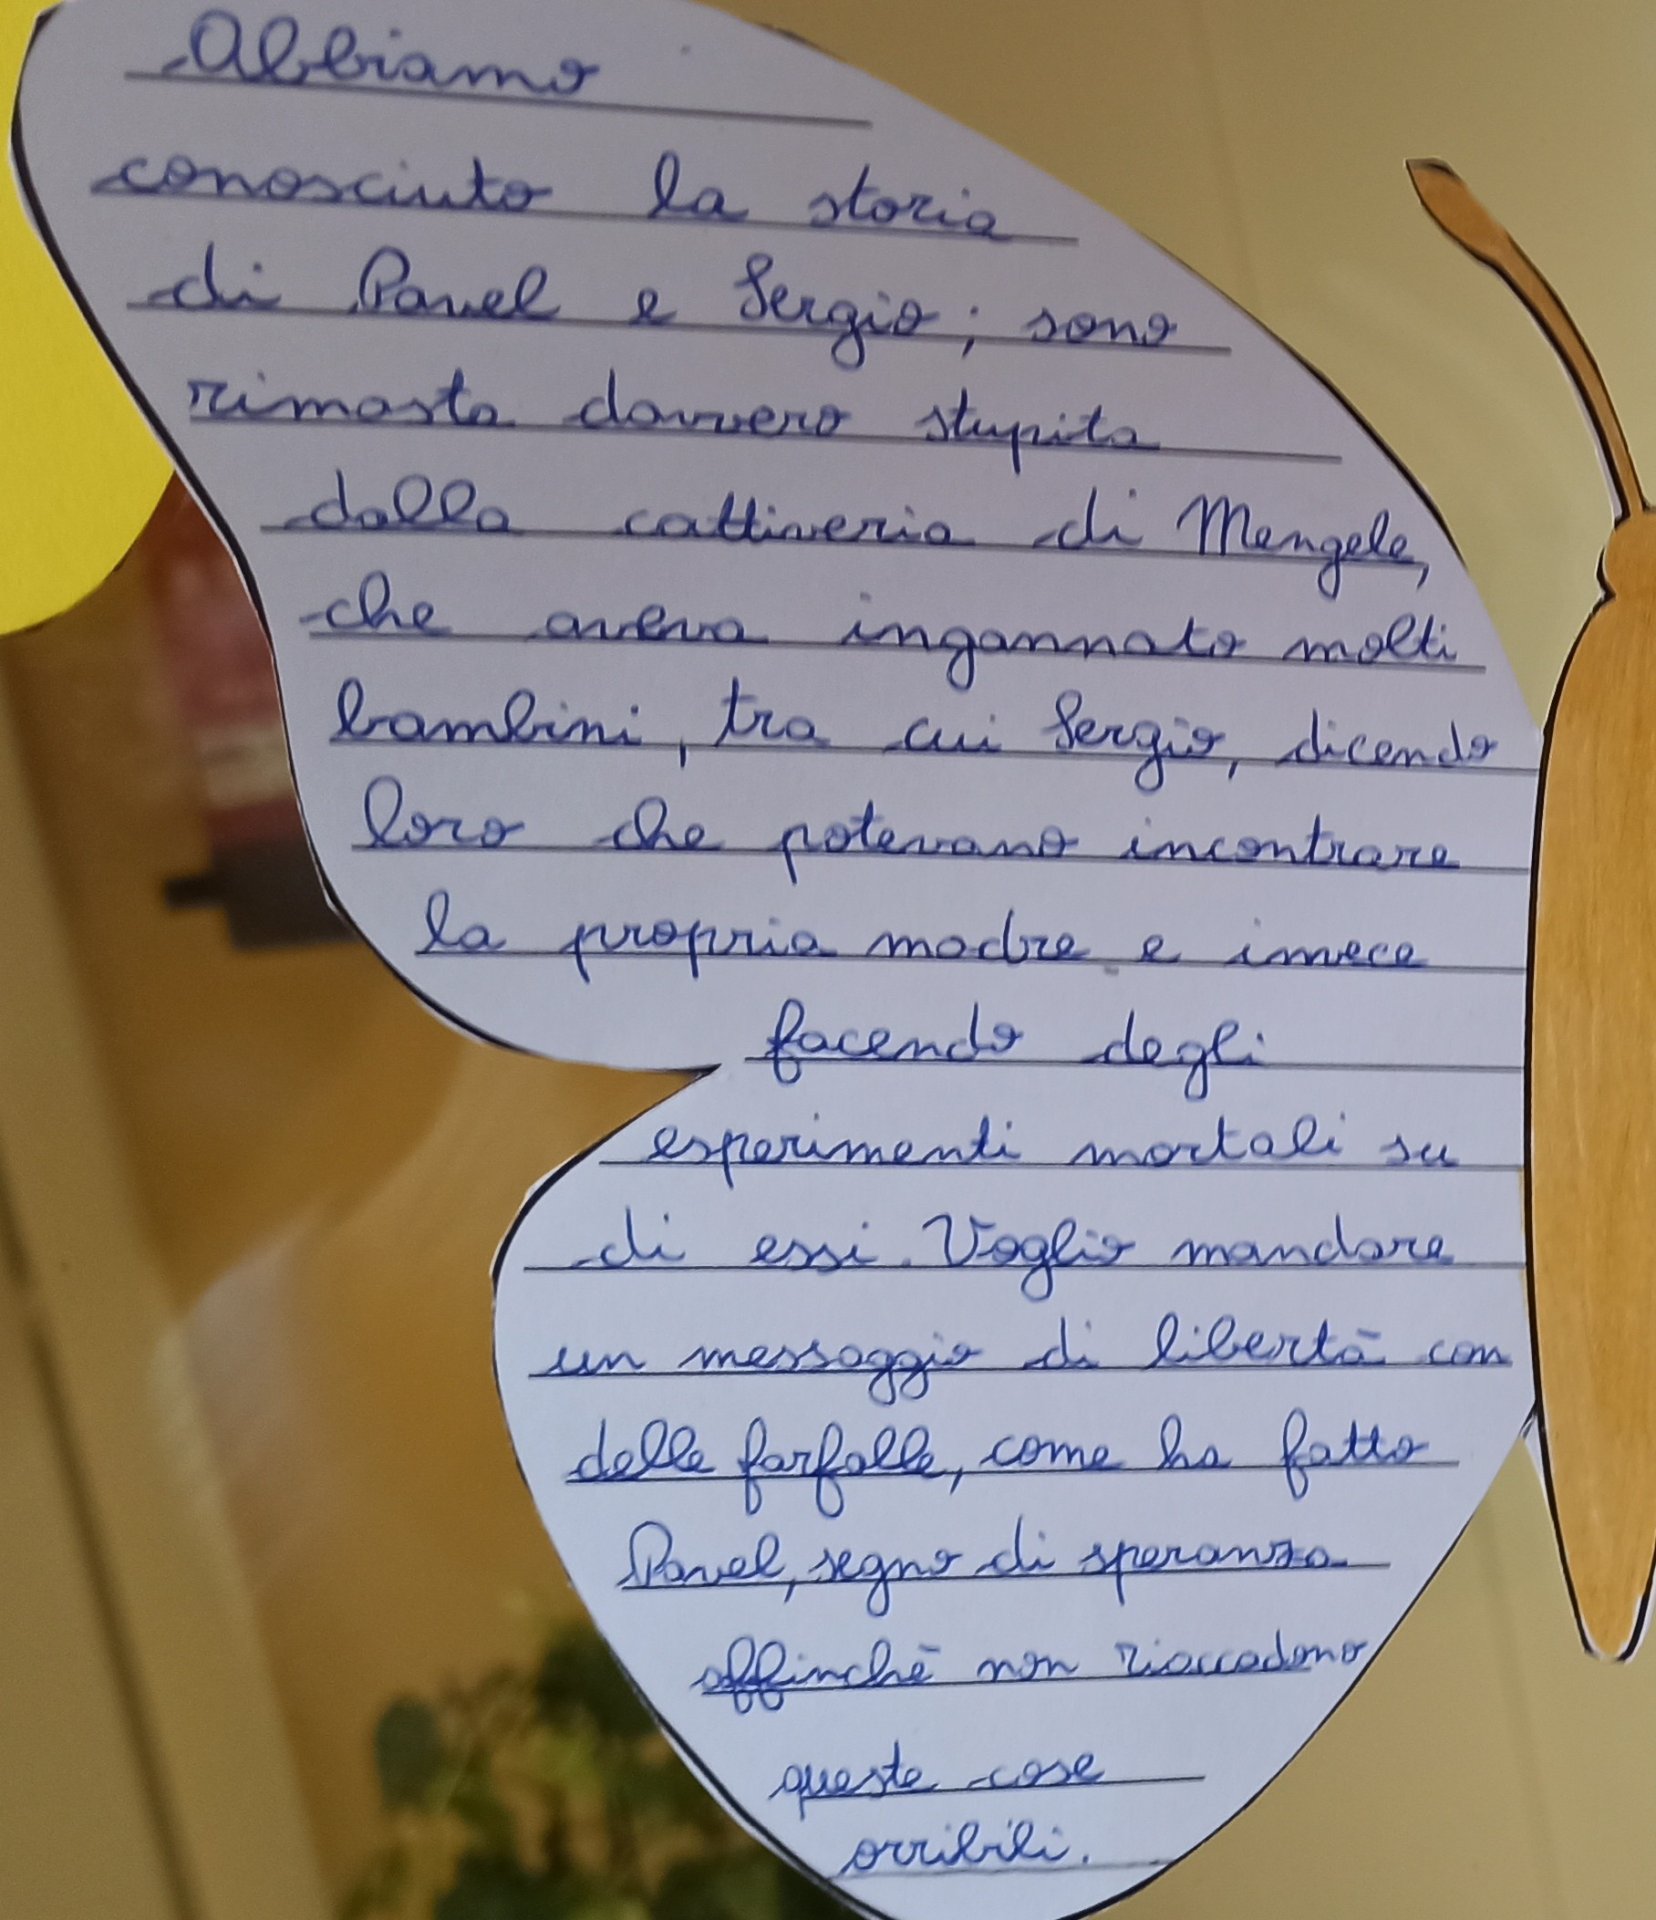 Abbiamo
conosciuto la storia
di Pavel e Sergio; sono
rimasta davvero stupita
dalla cattiveria di Mengele,
che aveva ingannato molti
bambini, tra cui Sergio, dicendo
loro che potevano incontrare
la propria madre e invece
facendo degli
esperimenti mortali su
di essi. Voglio mandare
un messaggio di libertà con
delle farfalle, come ha fatto
Pavel, segno di speranza
affinché non riaccadono
queste cose
orribili.